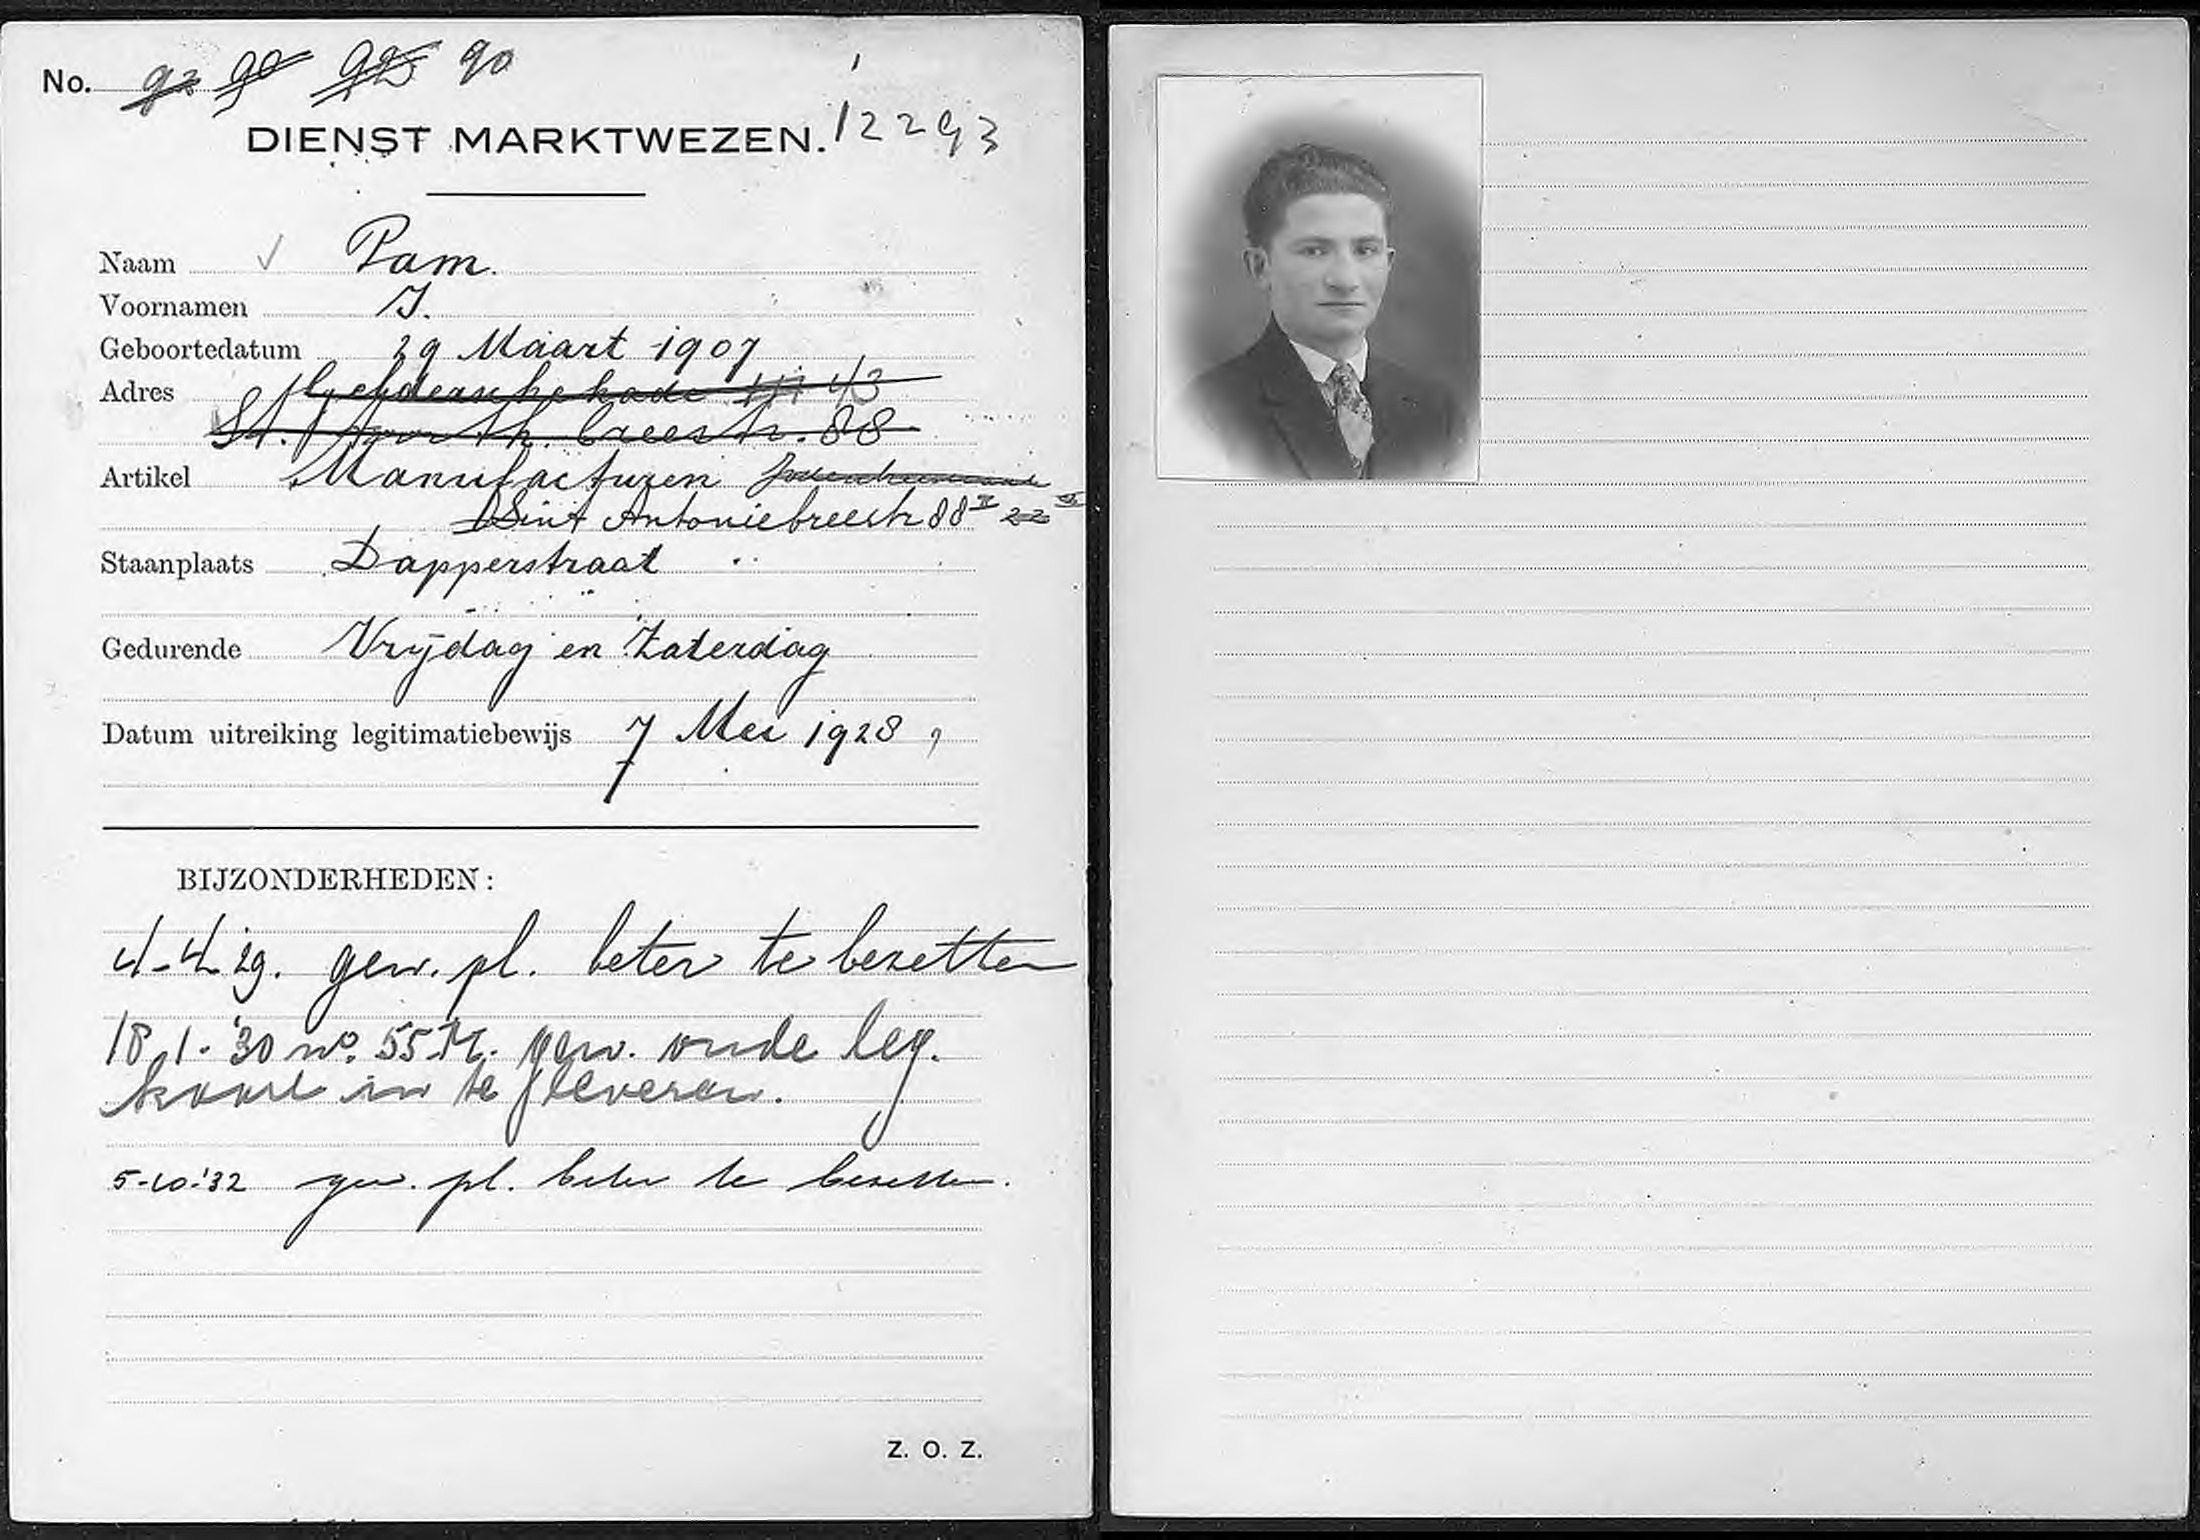 No. 92 90 925 90
DIENST MARKTWEZEN. 12293
Naam Pam.
Voornamen I.
Geboortedatum 29 Maart 1907
Adres Geldersche kade 43
St. Anth. breestr. 88
Artikel Manufacturen
Sint Antoniebreestr 88 II 22
Staanplaats Dapperstraat
Gedurende Vrijdag en Zaterdag
Datum uitreiking legitimatiebewijs 7 Mei 1928
BIJZONDERHEDEN:
4-4 29. gew. pl. beter te bezetten
18.1.'30 no. 55 M. gew. oude leg.
kaart in te leveren.
5-10-'32 gew. pl. beter te bezetten.
Z. O. Z.